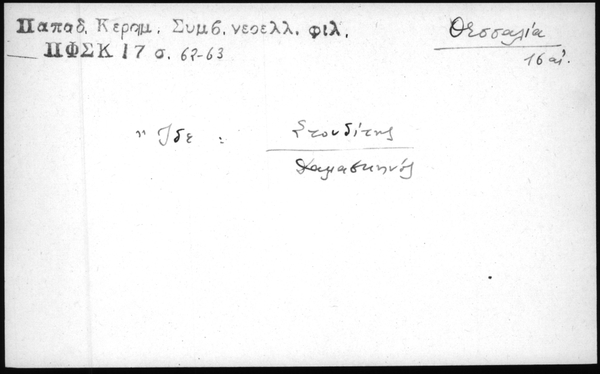 Παπαδ. Κεραμ. Συμβ. νεοελλ. φιλ.
ΠΦΣΚ 17 σ. 62-63
Θεσσαλία
16 αἰ.
"Ιδε :
Στουδίτης
Δαμασκηνός